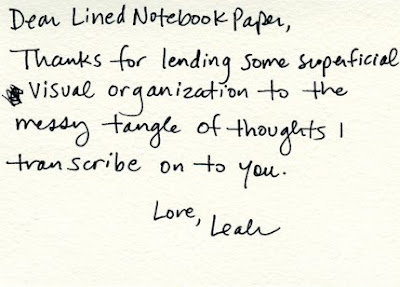 Dear Lined Notebook Paper,
Thanks for lending some superficial
visual organization to the
messy tangle of thoughts I
transcribe on to you.
Love,
Leah